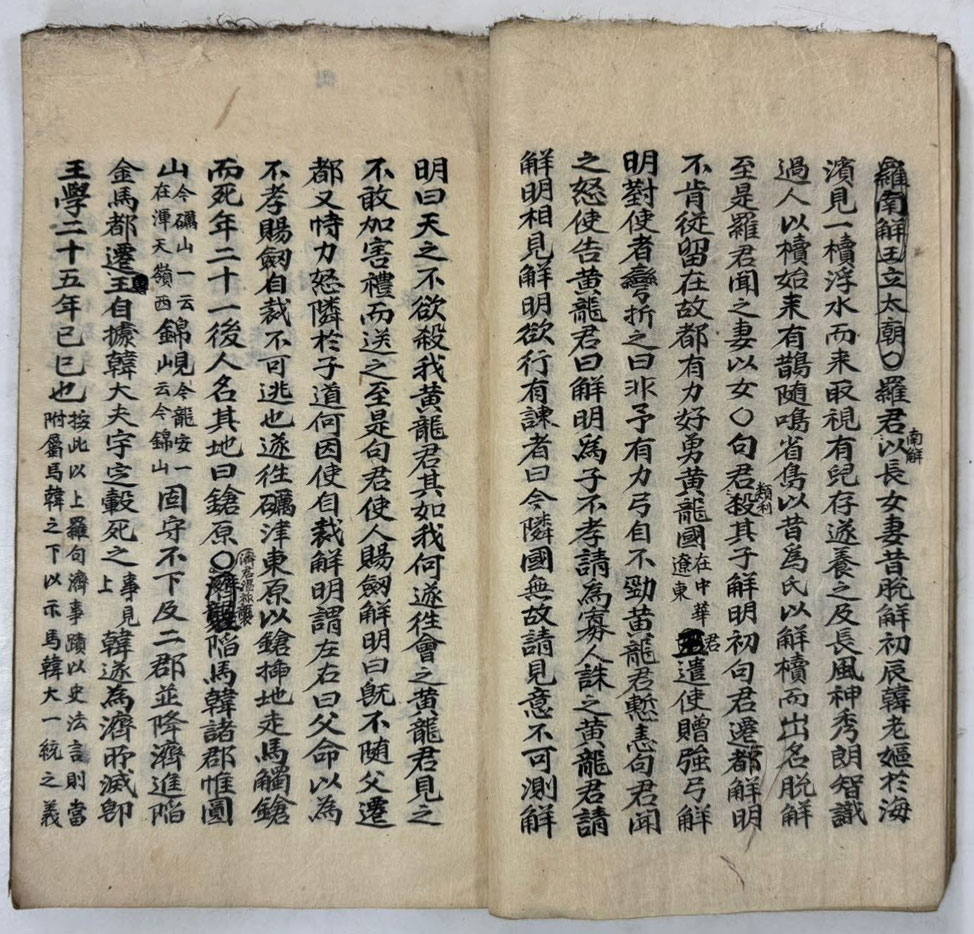 羅南解王立太朝〇羅君南解以長女妻昔脫解初辰韓老嫗於海
濱見一櫝浮水而来取視有兒存遂養之及長風神秀朗智識
過人以櫝始来有鵲随鳴省鳥以昔為氏以解櫝而出名脫解
至是羅君聞之妻以女〇句君類利殺其子解明初句君遷都解明
不肯従留在故都有力好勇黄龍國在中華遼東君遣使贈強弓解
明對使者彎折之曰非予有力弓自不勁黄龍君慙恚句君聞
之怒使告黄龍君曰解明為子不孝請為寡人誅之黄龍君請
解明相見解明欲行有諫者曰今隣國無故請見意不可測解
明曰天之不欲殺我黄龍君其如我何遂往會之黄龍君見之
不敢加害禮而送之至是句君使人賜劔解明曰旣不随父遷
都又恃力怒隣於子道何因使自裁解明謂左右曰父命以為
不孝賜劔自裁不可逃也遂往礪津東原以鎗揷地走馬觸鎗
而死年二十一後人名其地曰鎗原〇濟君溫祚襲陷馬韓諸郡惟圓
山今礪山一云在渾天嶺西錦峴今龍安一云今錦山固守不下及二郡並降濟進陷
金馬都遷王自據韓大夫字定轂死之事見上韓遂為濟所滅卽
王學二十五年已巳也按此以上羅句濟事蹟以史法言則當附屬馬韓之下以示馬韓大一統之義